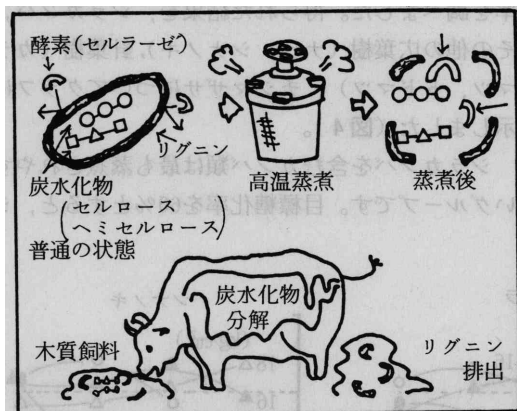 酵素(セルラーゼ)
リグニン
炭水化物
(セルロース
ヘミセルロース)
普通の状態
高温蒸煮
蒸煮後
炭水化物
分解
木質飼料
リグニン
排出